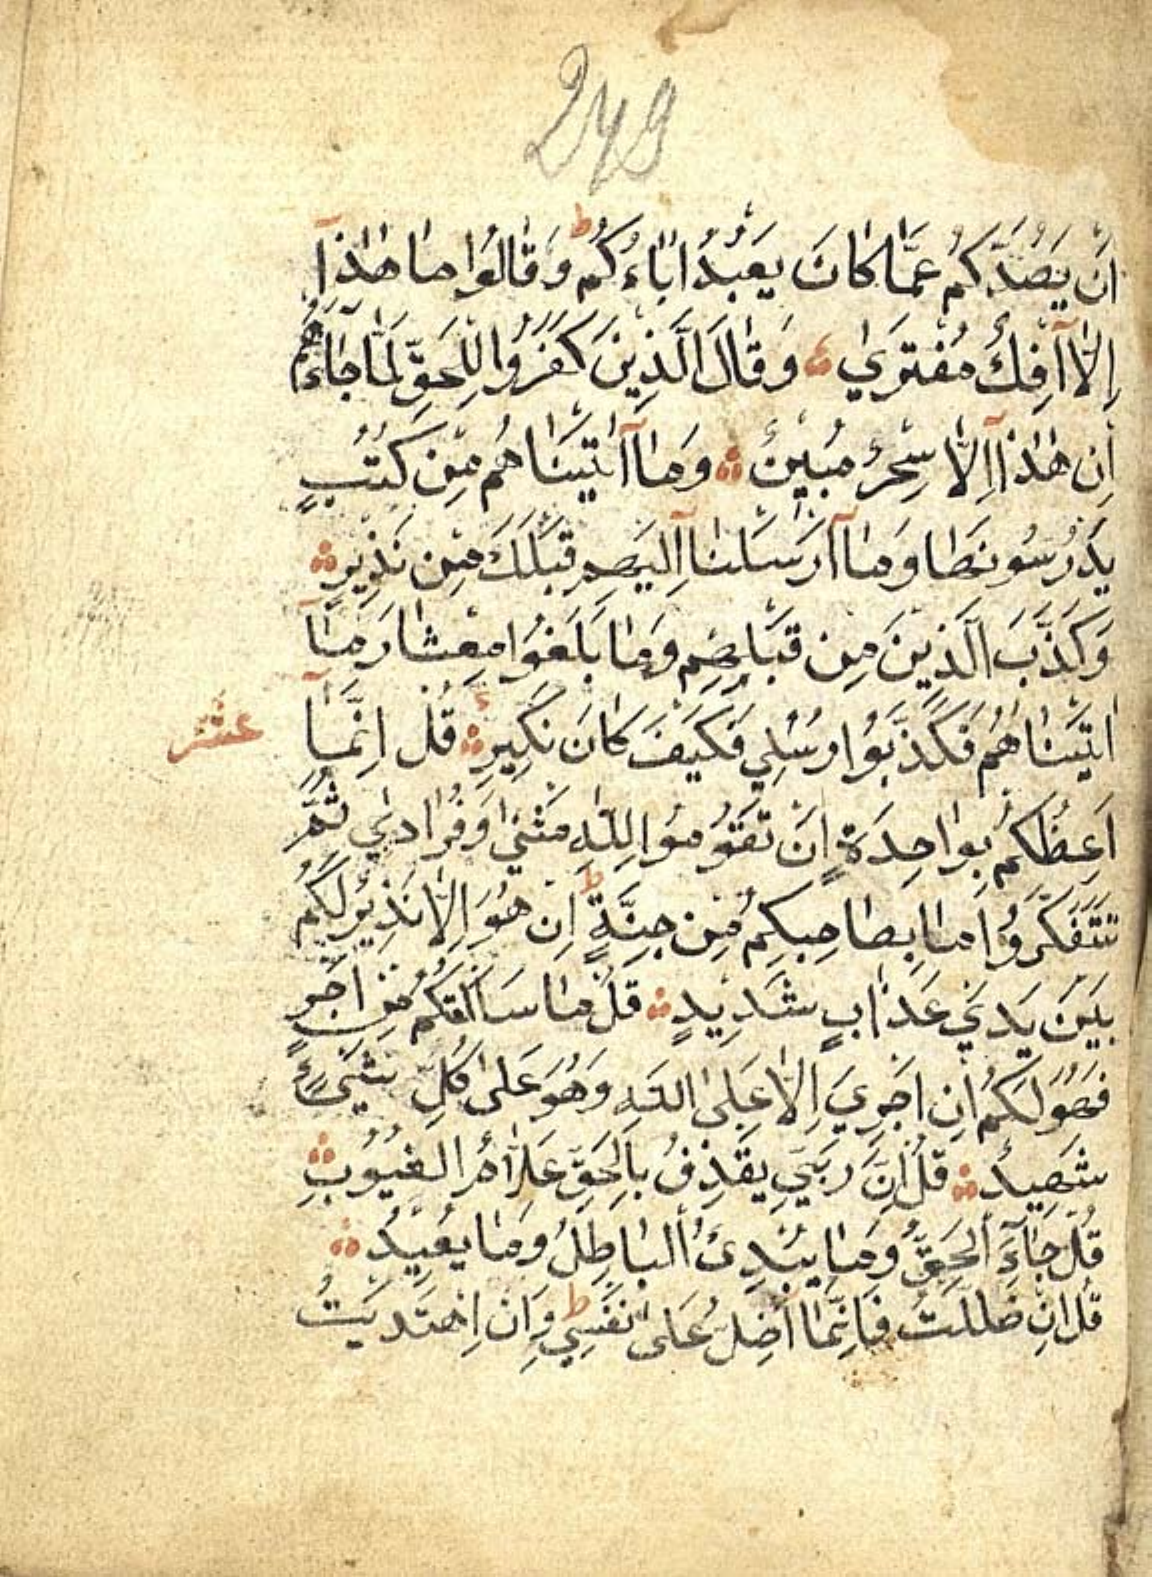 249
اَنْ يَصُدَّكُمْ عَمَّا كَانَ يَعْبُدُ اٰبَاءُكُمْ ط وَقَالُوا مَا هٰذَآ
اِلَّا اٰفِكٌ مُفْتَرَيٰ وَقَالَ الَّذِينَ كَفَرُوا لِلْحَقِّ لَمَّا جَاءَهُمْ
اِنْ هٰذَآ اِلَّا سِحْرٌ مُبِينٌ وَمَآ اٰتَيْنَاهُمْ مِنْ كُتُبٍ
يَدْرُسُونَهَا وَمَآ اَرْسَلْنَآ اِلَيْهِمْ قَبْلَكَ مِنْ نَذِيرٍ
وَكَذَّبَ الَّذِينَ مِنْ قَبْلِهِمْ وَمَا بَلَغُوا مِعْشَارَ مَآ
اٰتَيْنَاهُمْ فَكَذَّبُوا رُسُلِي فَكَيْفَ كَانَ نَكِيرِ قُلْ اِنَّمَآ
عشر
اَعِظُكُمْ بِوَاحِدَةٍ اَنْ تَقُومُوا لِلّٰهِ مَثْنٰي وَفُرَادٰي ثُمَّ
تَتَفَكَّرُوا مَا بِصَاحِبِكُمْ مِنْ جِنَّةٍ ط اِنْ هُوَ اِلَّا نَذِيرٌ لَكُمْ
بَيْنَ يَدَيْ عَذَابٍ شَدِيدٍ قُلْ مَا سَاَلْتُكُمْ مِنْ اَجْرٍ
فَهُوَ لَكُمْ اِنْ اَجْرِيَ اِلَّا عَلَى اللّٰهِ وَهُوَ عَلٰى كُلِّ شَيْءٍ
شَهِيدٌ قُلْ اِنَّ رَبِّي يَقْذِفُ بِالْحَقِّ عَلَّامُ الْغُيُوبِ
قُلْ جَآءَ الْحَقُّ وَمَا يُبْدِئُ الْبَاطِلُ وَمَا يُعِيدُ
قُلْ اِنْ ضَلَلْتُ فَاِنَّمَا اَضِلُّ عَلٰى نَفْسِي ط وَاِنِ اهْتَدَيْتُ